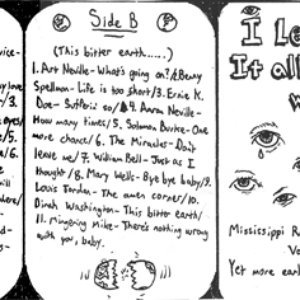 vice-
my love
/3.
s on
e/5.
ke/6.
e
still
where/
d-
s-
Side B
(This bitter earth......)
1. Art Neville- What's going on?/2. Benny
Spellman- Life is too short/3. Ernie K.
Doe- Sufferin' so/4. Aaron Neville-
How many times/5. Solomon Burke- One
more chance/6. The Miracles- Don't
leave me/7. William Bell- Just as I
thought/8. Mary Wells- Bye bye baby/9.
Louis Jordan- The amen corner/10.
Dinah Washington- This bitter earth/
11. Mingering Mike- There's nothing wrong
with you, baby.
I Le
It all
w
Mississippi R
Vo
Yet more eart